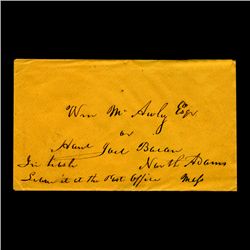 Wm McAuly Esqr
or
Hane Joel Bacon
In hast North Adams
at the Post Office Mass